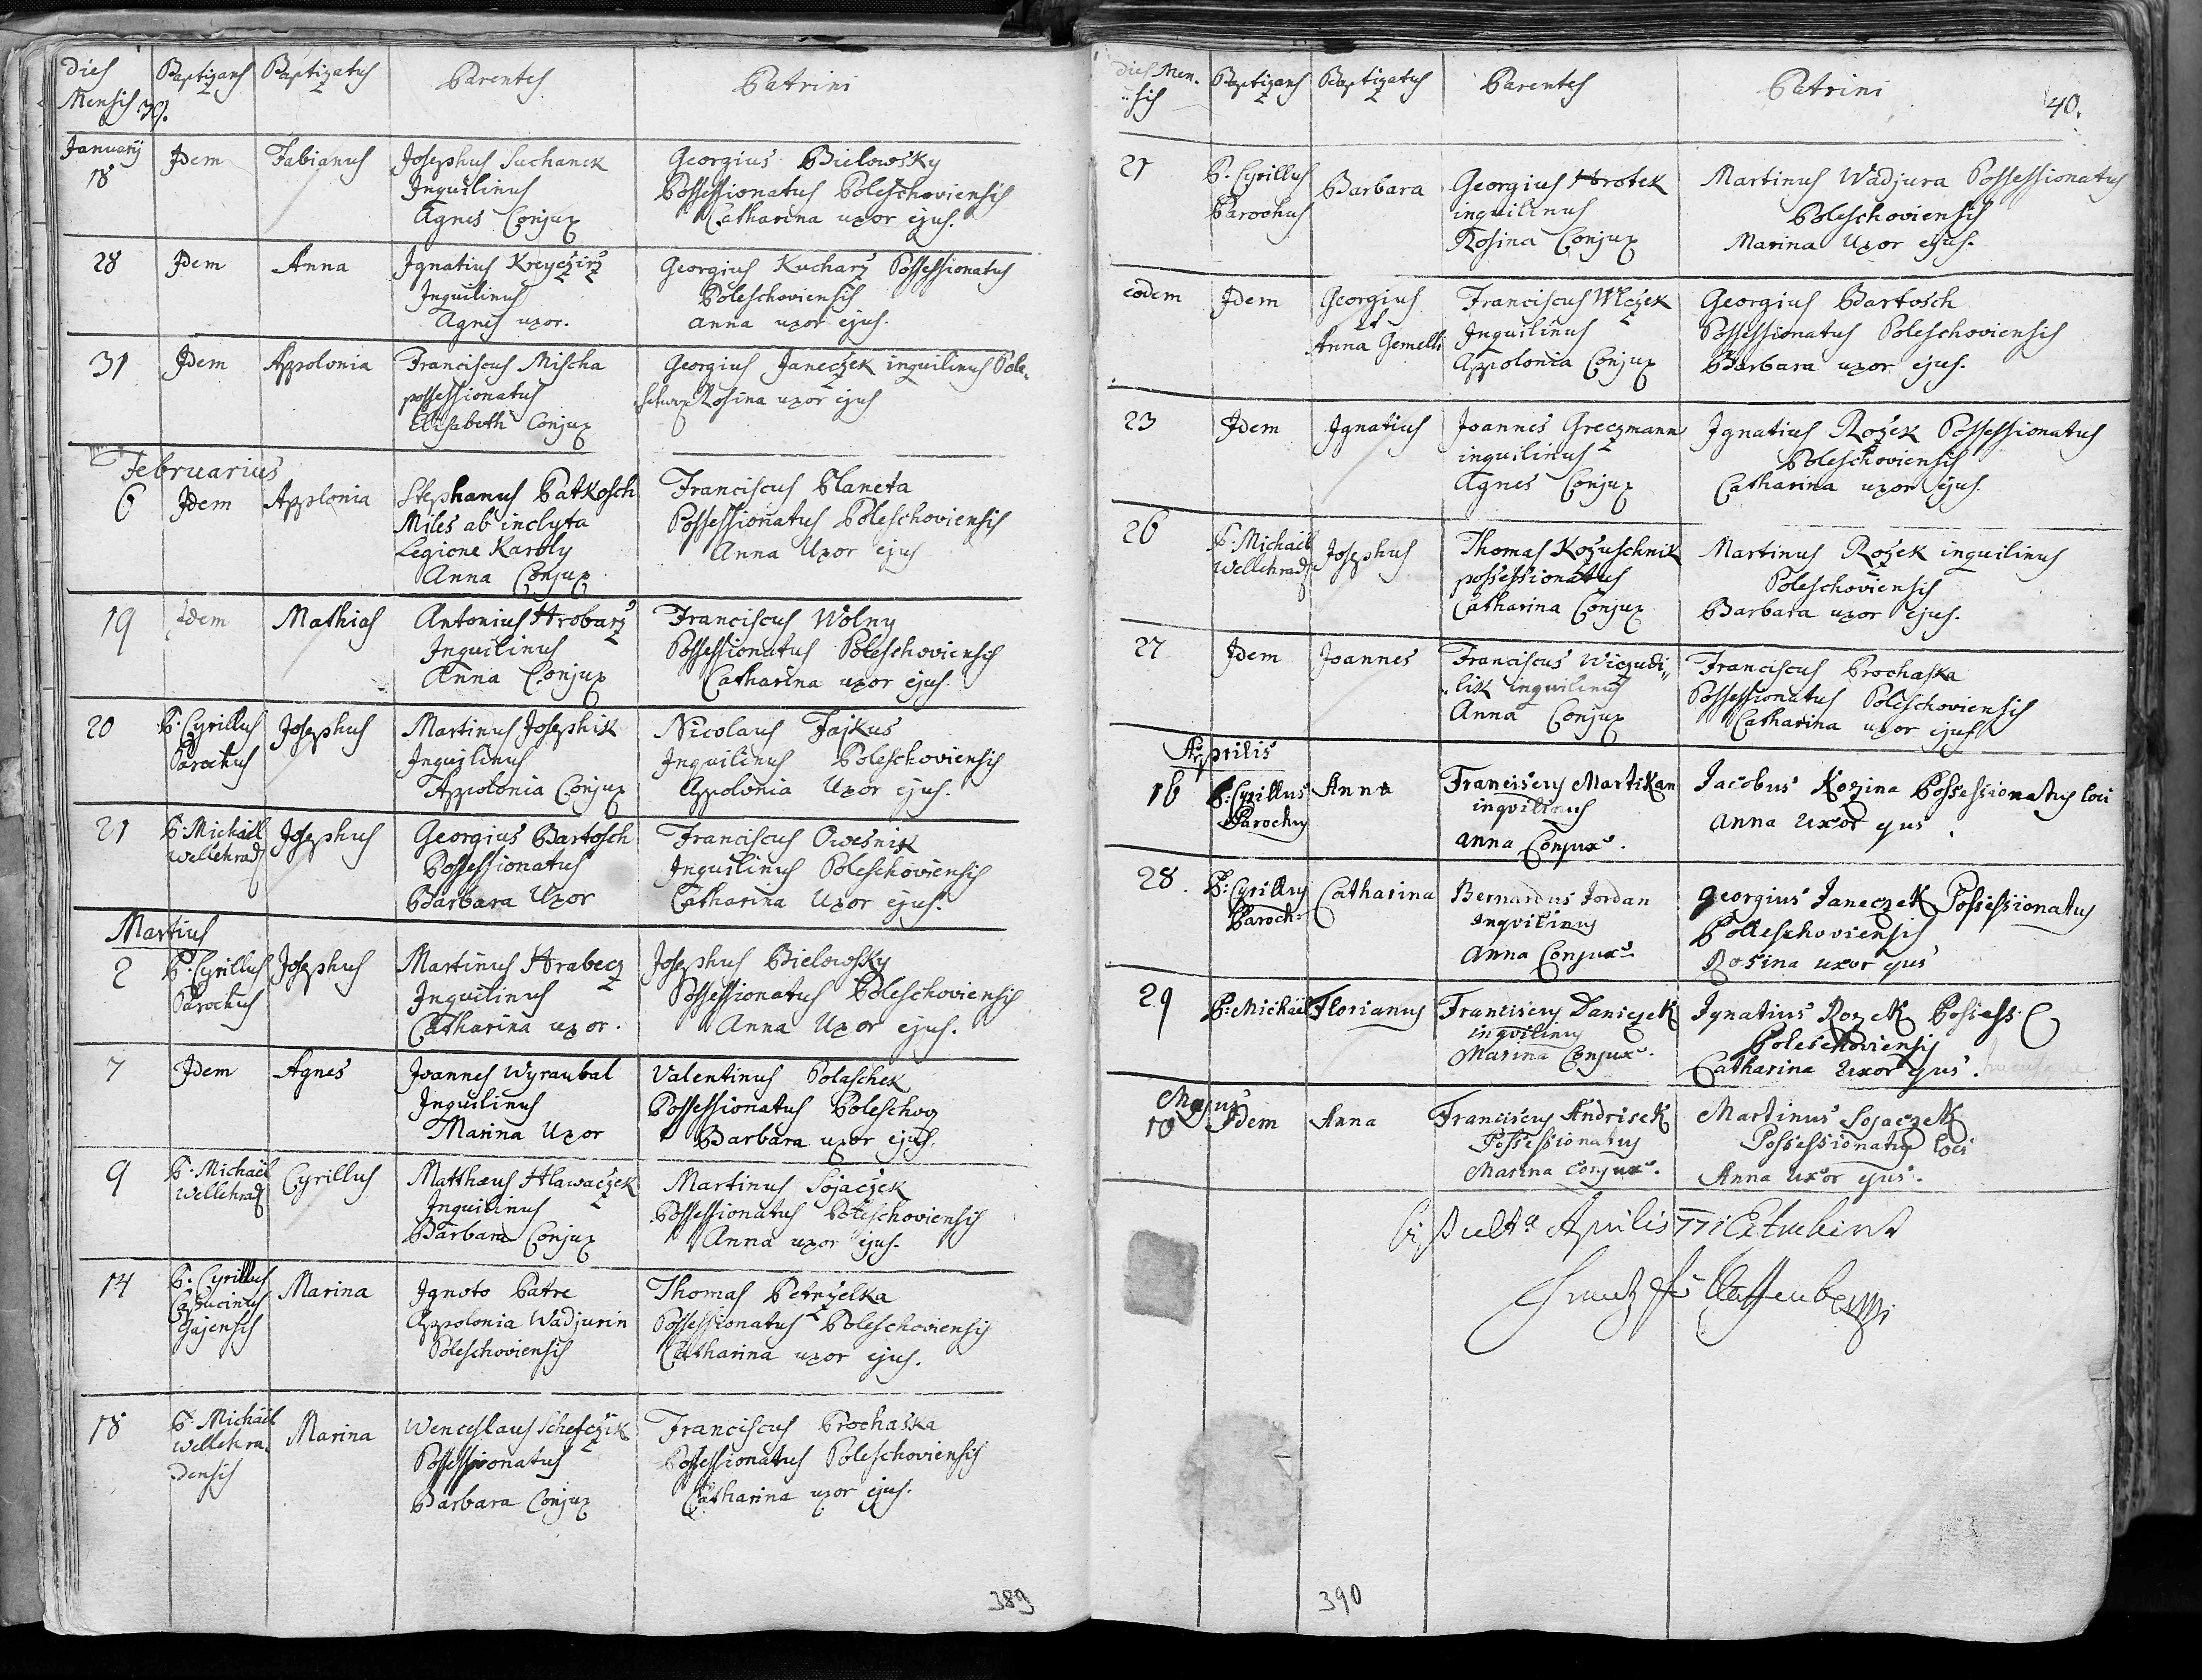 Dies Baptizans Baptizatus Parentes Patrini
Mensis 39.
Januarij
18 Idem Fabianus Josephus Suchanek Georgius Bielowsky
Inquilinus Possessionatus Poleschoviensis
Agnes Conjux Catharina uxor ejus.
28 Idem Anna Ignatius Kreyczirz Georgius Kucharz Possessionatus
Inquilinus Poleschoviensis
Agnes uxor. Anna uxor ejus.
31 Idem Appolonia Franciscus Mischa Georgius Janeczek inquilinus Pole-
possessionatus Rosina uxor ejus
Elisabeth Conjux
Februarius
6 Idem Applonia Stephanus Patkosch Franciscus Planeta
Miles ab inclyta Possessionatus Poleschoviensis
Legione Karoly Anna Uxor ejus
Anna Conjux
19 Idem Mathias Antonius Hrobarz Franciscus Wolny
Inquilinus Possessionatus Poleschoviensis
Anna Conjux Catharina uxor ejus.
20 P. Cyrillus Josephus Martinus Josephik Nicolaus Fajkus
Parochus Inquilinus Inquilinus Poleschoviensis
Appolonia Conjux Appolonia Uxor ejus.
21 P. Michaël Josephus Georgius Bartosch Franciscus Owesnik
Wellehrad Possessionatus Inquilinus Poleschoviensis
Barbara Uxor Catharina Uxor ejus.
Martius
2 P. Cyrillus Josephus Martinus Hrabecz Josephus Bielowsky
Parochus Inquilinus Possessionatus Poleschoviensis
Catharina uxor. Anna Uxor ejus.
7 Idem Agnes Joannes Wyraubal Valentinus Polaschek
Inquilinus Possessionatus Poleschov
Marina Uxor Barbara uxor ejus.
9 P. Michaël Cyrillus Matthæus Hlawaczek Martinus Sojaczek
Wellehrad Inquilinus Possessionatus Poleschoviensis
Barbara Conjux Anna uxor ejus.
14 P. Cyrillus Marina Ignoto Patre Thomas Petrzelka
Capucinus Appolonia Wadjurin Possessionatus Poleschoviensis
Gajensis Poleschoviensis Catharina uxor ejus.
18 P. Michaël Marina Wenceslaus Schefczik Franciscus Prochaska
Wellehra- Possessionatus Possessionatus Poleschoviensis
densis Barbara Conjux Catharina uxor ejus.
389
Dies Men- Baptizans Baptizatus Parentes Patrini 40.
sis
21 P. Cyrillus Barbara Georgius Hrotek Martinus Wadjura Possessionatus
Parochus inquilinus Poleschoviensis
Rosina Conjux Marina Uxor ejus.
eodem Idem Georgius Franciscus Wlczek Georgius Bartosch
et Inquilinus Possessionatus Poleschoviensis
Anna Gemelli Appolonia Conjux Barbara uxor ejus.
23 Idem Ignatius Joannes Greczmann Ignatius Rozek Possessionatus
inquilinus Poleschoviensis
Agnes Conjux Catharina uxor ejus.
26 P. Michaël Josephus Thomas Kozuschnik Martinus Rozek inquilinus
Wellehrad possessionatus Poleschoviensis
Catharina Conjux Barbara uxor ejus.
27 Idem Joannes Franciscus Wiczudi- Franciscus Prochaska
lik inquilinus Possessionatus Poleschoviensis
Anna Conjux Catharina uxor ejus
Aprilis
16 P: Cyrillus Anna Franciscus Martikan Jacobus Kozina Possessionatus loci
Parochus inquilinus Anna Uxor ejus.
Anna Conjux.
28. P: Cyrillus Catharina Bernardus Jordan Georgius Janeczek Possessionatus
Paroch: Inquilinus Polleschoviensis
Anna Conjux Rosina uxor ejus
29 P: Michaël Florianus Franciscus Daniczek Ignatius Rozek Possess:
inquilinus Poleschoviensis
Marina Conjux. Catharina Uxor ejus.
Majus
10 Idem Anna Franciscus Andrisek Martinus Sojaczek
Possessionatus Possessionatus loci
Marina Conjux. Anna Uxor ejus.
Aprilis
390